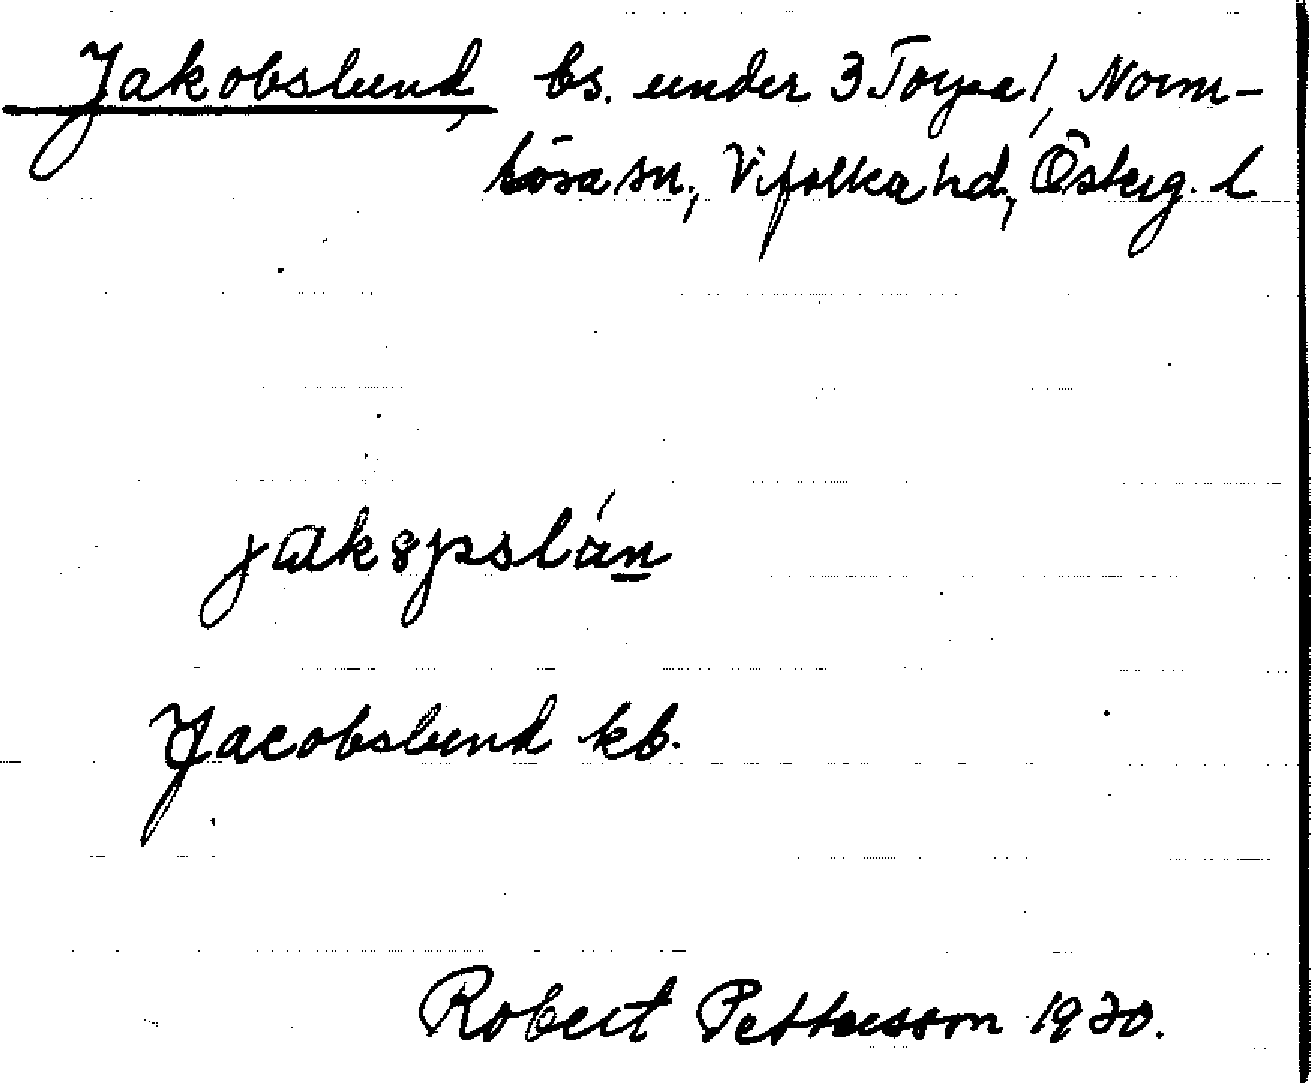 Jakobslund, bs. under 3 Torpa!, Norm-
lösa sn., Vifolka hd, Österg. l
jakȣpslán
Jacobslund kb.
Robert Pettersson 1930.